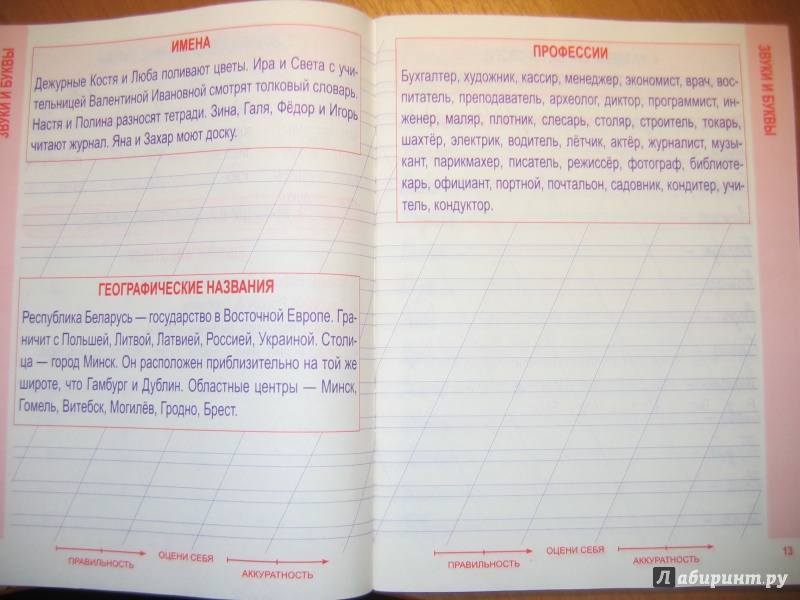 ЗВУКИ И БУКВЫ
ИМЕНА
Дежурные Костя и Люба поливают цветы. Ира и Света с учи-
тельницей Валентиной Ивановной смотрят толковый словарь.
Настя и Полина разносят тетради. Зина, Галя, Фёдор и Игорь
читают журнал. Яна и Захар моют доску.
ГЕОГРАФИЧЕСКИЕ НАЗВАНИЯ
Республика Беларусь — государство в Восточной Европе. Гра-
ничит с Польшей, Литвой, Латвией, Россией, Украиной. Столи-
ца — город Минск. Он расположен приблизительно на той же
широте, что Гамбург и Дублин. Областные центры — Минск,
Гомель, Витебск, Могилёв, Гродно, Брест.
ПРАВИЛЬНОСТЬ
ОЦЕНИ СЕБЯ
АККУРАТНОСТЬ
ПРОФЕССИИ
Бухгалтер, художник, кассир, менеджер, экономист, врач, вос-
питатель, преподаватель, археолог, диктор, программист, ин-
женер, маляр, плотник, слесарь, столяр, строитель, токарь,
шахтёр, электрик, водитель, лётчик, актёр, журналист, музы-
кант, парикмахер, писатель, режиссёр, фотограф, библиоте-
карь, официант, портной, почтальон, садовник, кондитер, учи-
тель, кондуктор.
ЗВУКИ И БУКВЫ
ПРАВИЛЬНОСТЬ
ОЦЕНИ СЕБЯ
АККУРАТНОСТЬ
13
Лабиринт.ру